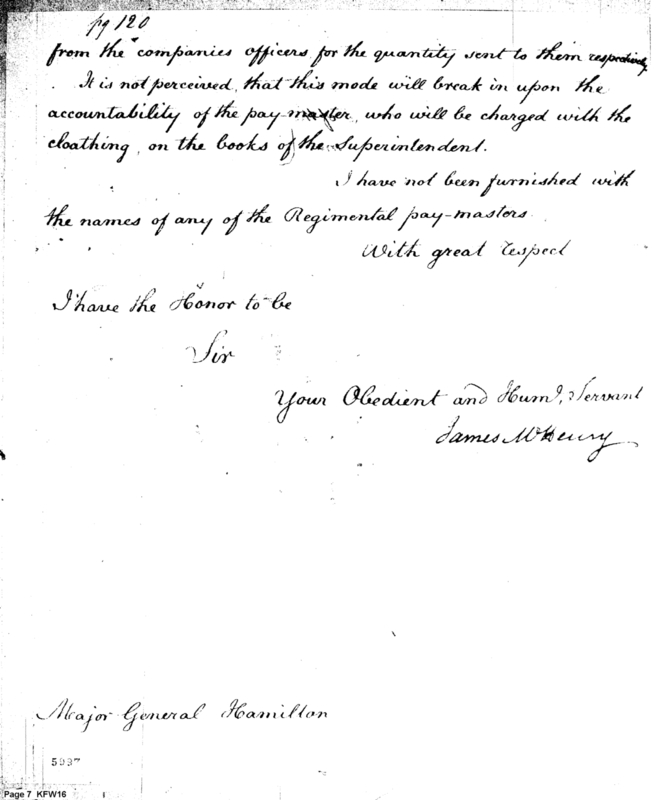 pg 120
from the companies officers for the quantity sent to them respectively.
It is not perceived, that this mode will break in upon the
accountability of the pay-master, who will be charged with the
cloathing, on the books of the Superintendent.
I have not been furnished with
the names of any of the Regimental pay-masters.
With great respect
I have the Honor to be
Sir
Your Obedient and Huml. Servant
James McHenry
Major General Hamilton
5937
Page 7 KFW16